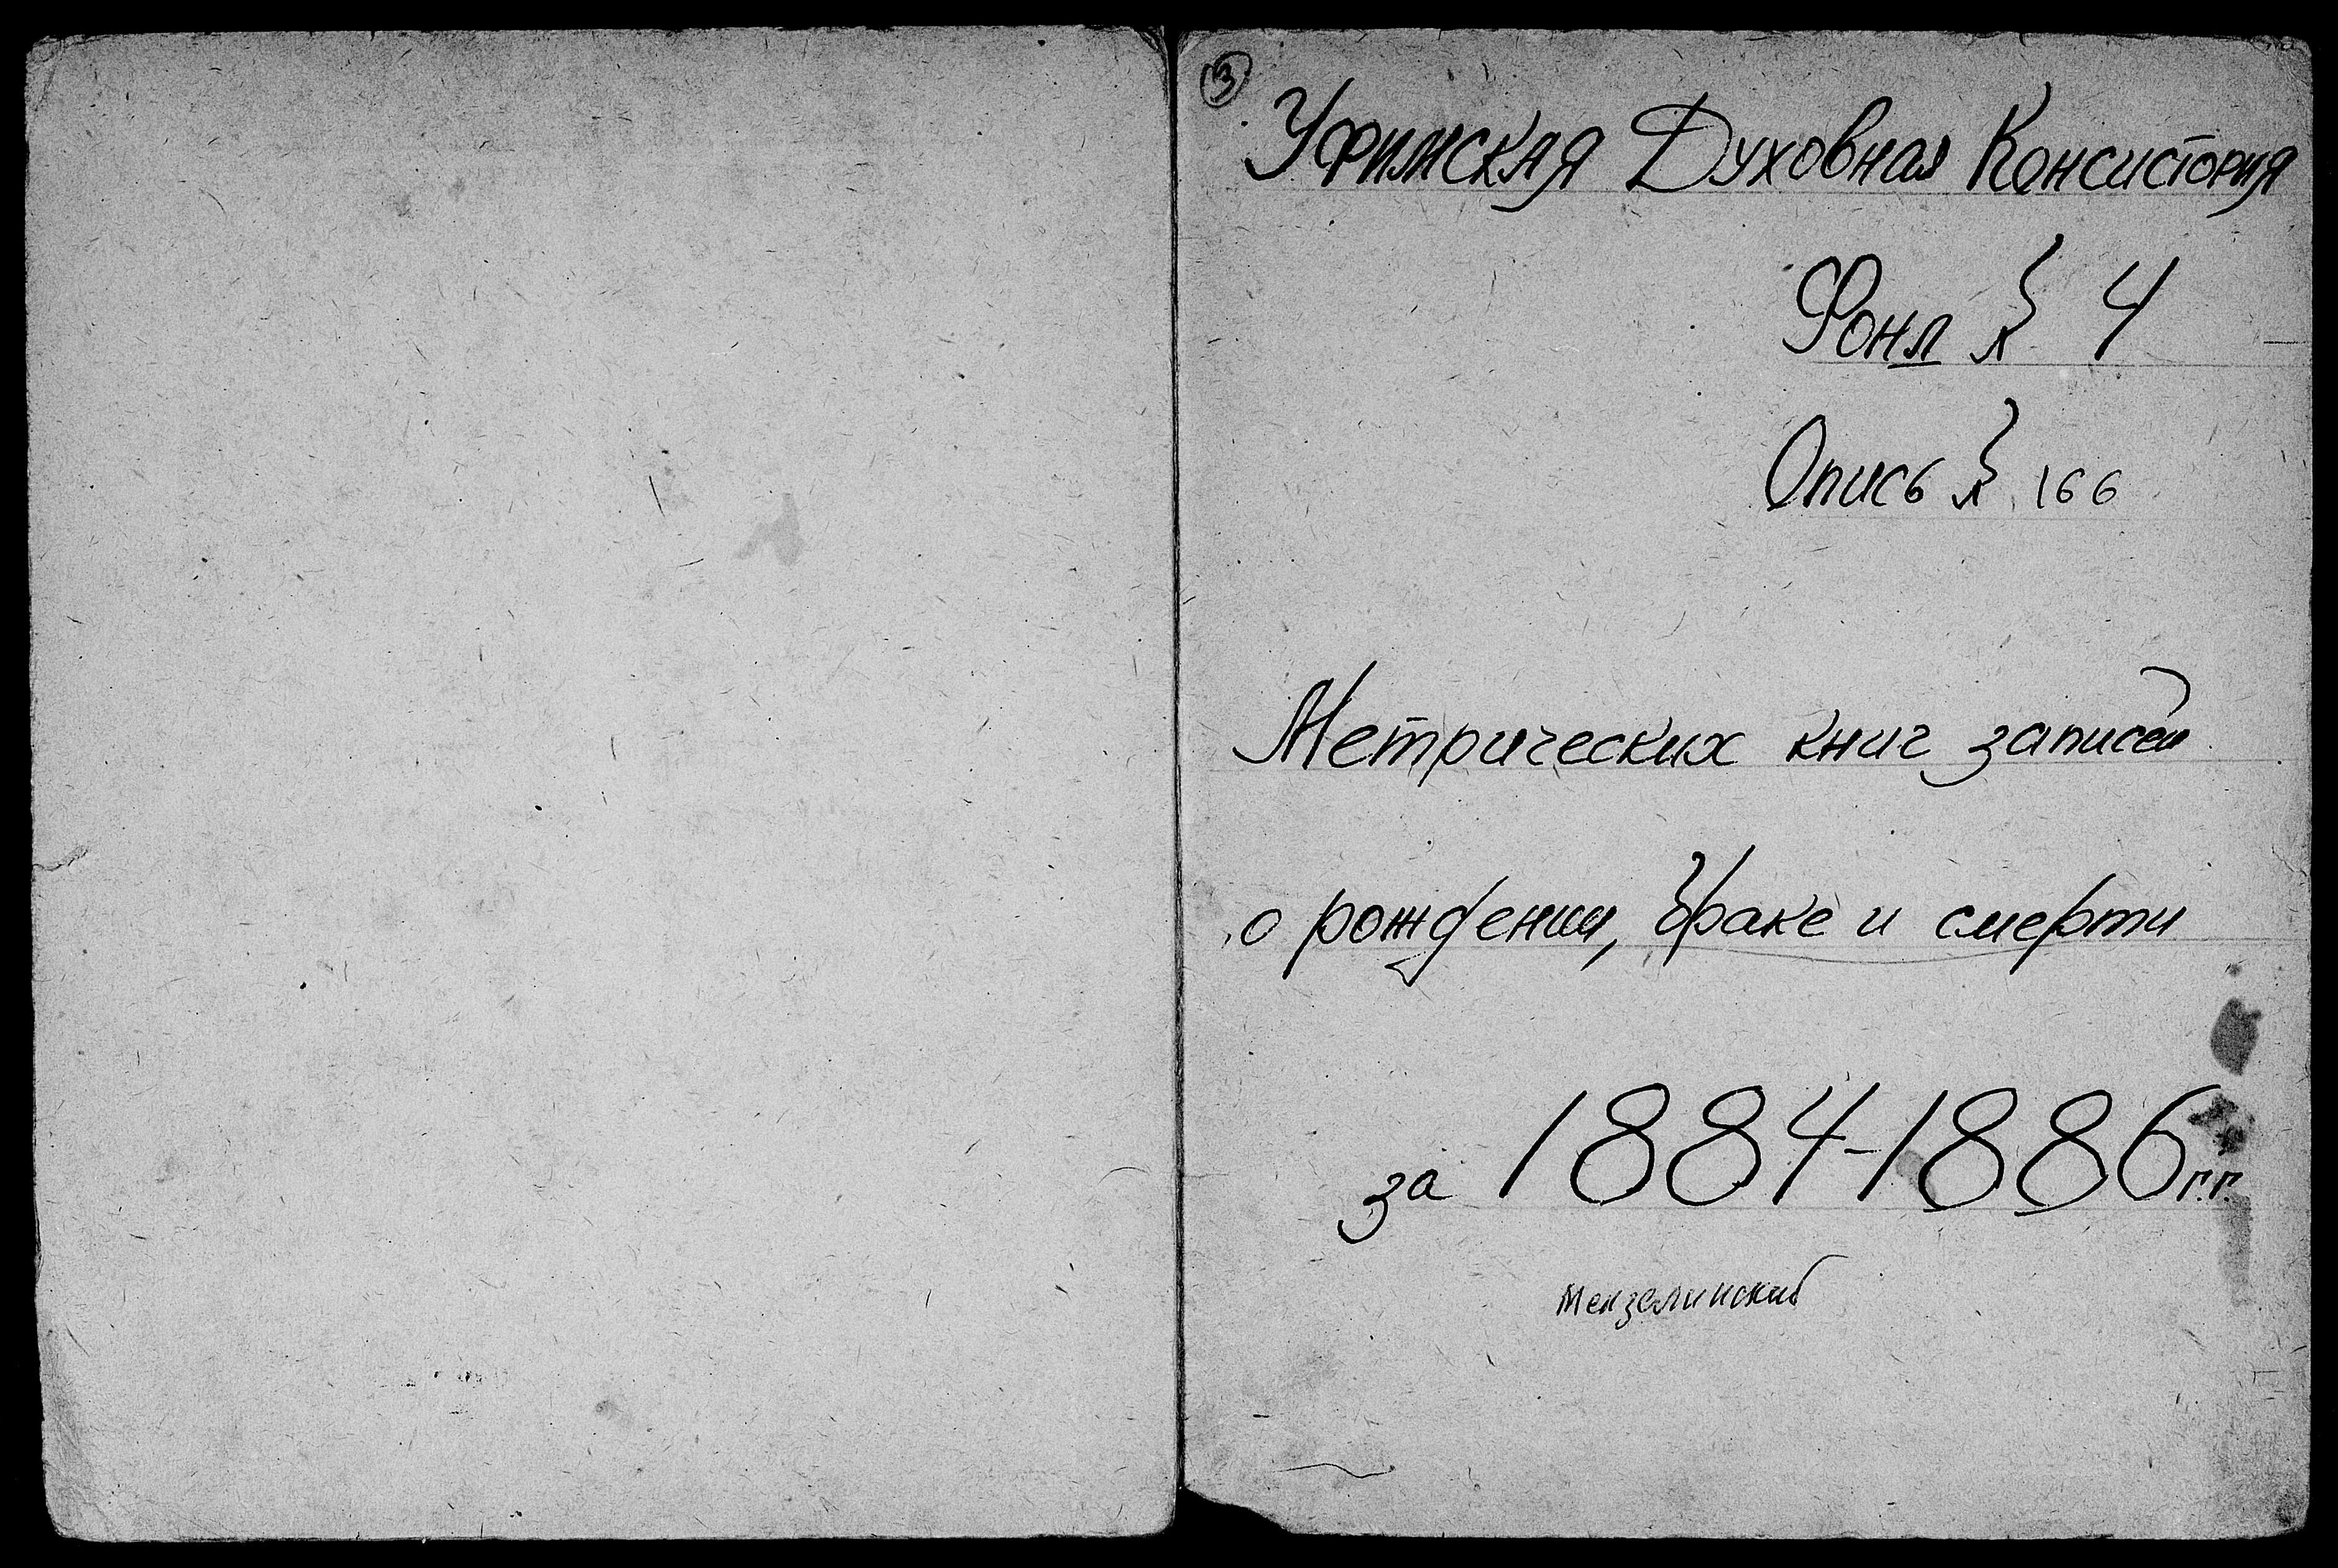 3
Уфимская Духовная Консистория
Фонд 4
Опись 166
Метрических книг записей
о рождении, браке и смерти
за 1884-1886 г.г.
Мензелинский